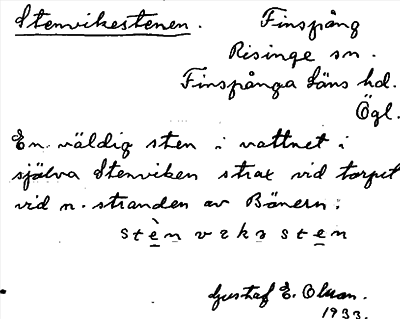 Stenvikestenen. Finspång
Risinge sn.
Finspånga Läns hd.
Ögl.
En väldig sten i vattnet i
själva Stenviken strax vid torpet
vid n. stranden av Bönern:
stèn veka sten
Gustaf E. Olsson.
1933.